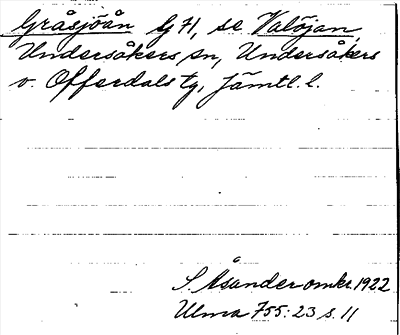 Gråsjöån Gj 71, se Valöjan,
Undersåkers sn, Undersåkers
o. Offerdals tg, Jämtl. l.
S Åsander omkr. 1922
Ulma 755:23 s. 11